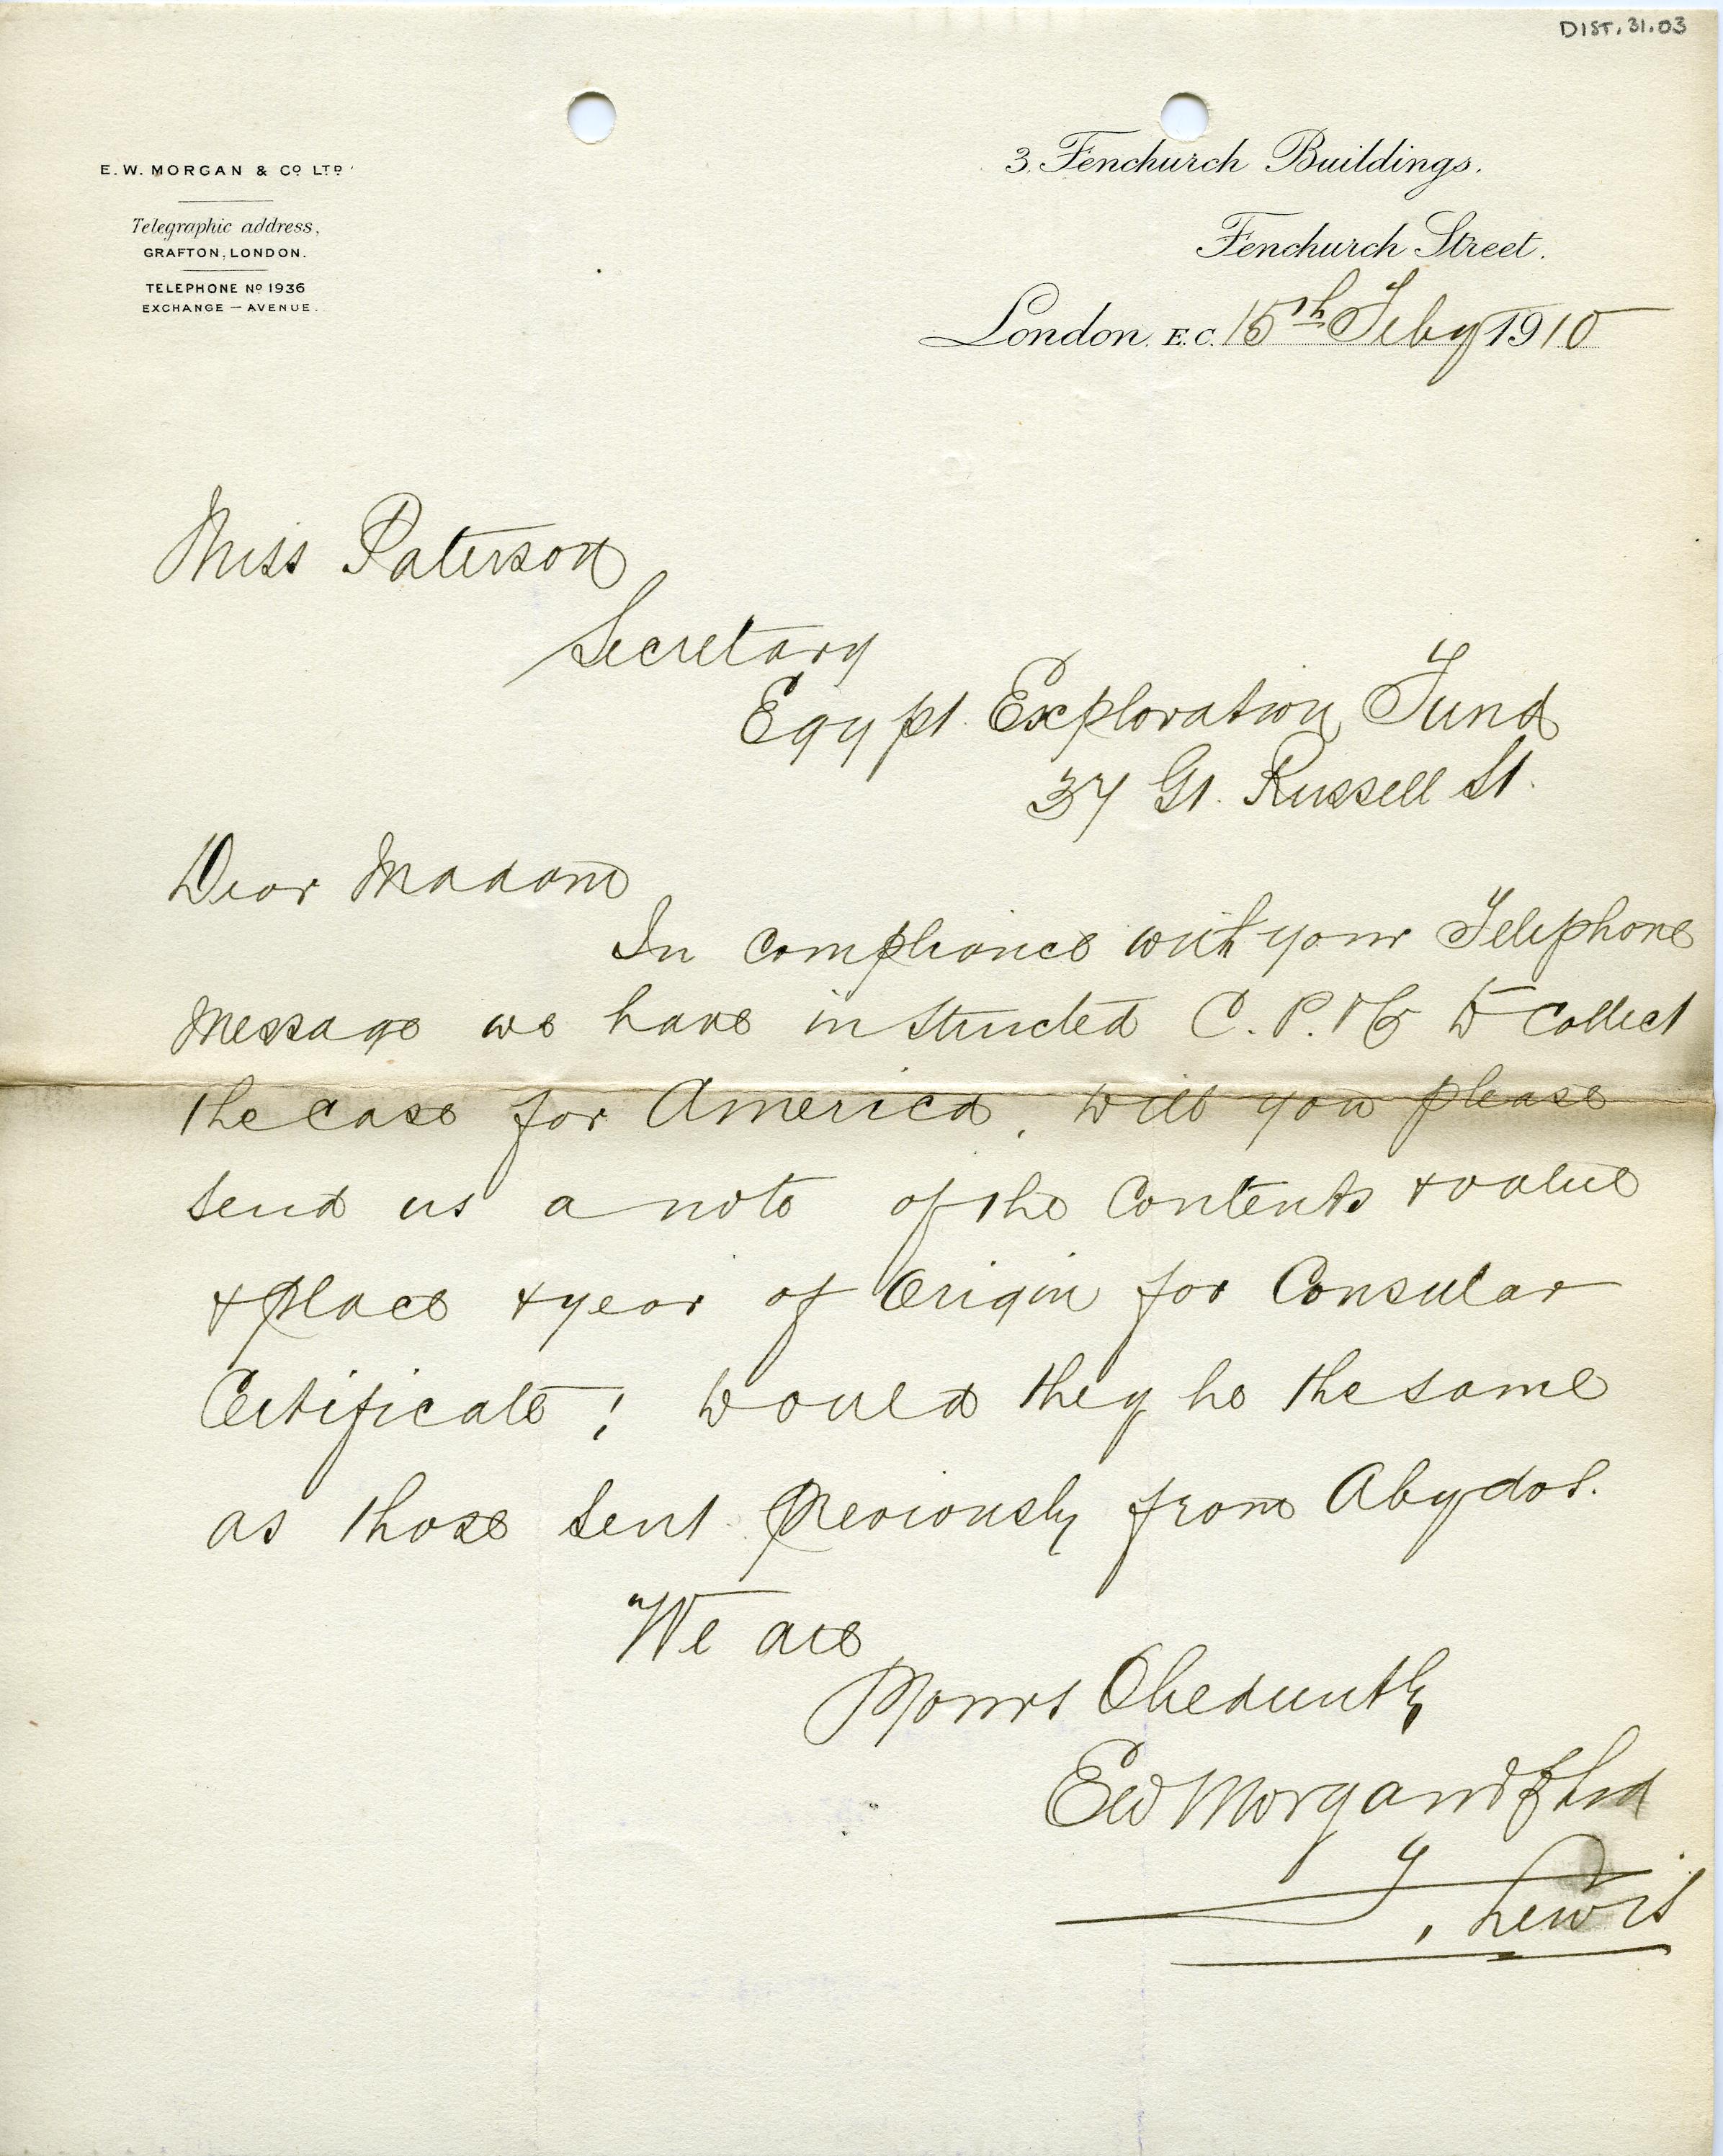 DIST.31.03
E.W. MORGAN & Co LTD
Telegraphic address,
GRAFTON, LONDON.
TELEPHONE No 1936
EXCHANGE — AVENUE.
3. Fenchurch Buildings.
Fenchurch Street.
London. E.C. 15th Feby 1910
Miss Paterson
Secretary
Egypt Exploration Fund
37 Gt. Russell St.
Dear Madam
In compliance with your Telephone
Message we have instructed C. P. & Co to collect
the case for America. Will you please
send us a note of the Contents & value
& place & year of Origin for Consular
Certificate; would they be the same
as those sent previously from Abydos.
We are
Yours Obediently
EW Morgan & Co Ltd
Lewis